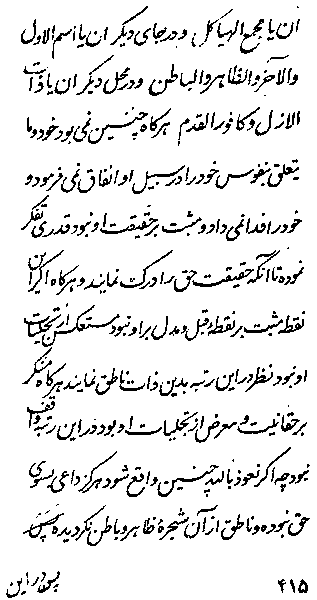 ان یا مجمع الهیاکل و در جای دیگر ان یا اسم الاول
والآخر والظاهر والباطن و در محل دیگر ان یا ذات
الازل و کافور القدم هرگاه چنین نمی بود خود و ما
یتعلق بنفوس خود را در سبیل او انفاق نمی فرمود و
خود را فدا نمی داد و مثبت بر حقیقت او نبود قدری تفکر
نموده تا آنکه حقیقت حق را درک نمایند و هرگاه اگر این
نقطه مثبت بر نقطه قبل و مدل بر او نبود مستعکس از تجلیات
او نبود نظر در این رتبه بدین ذات ناطق نمایند هرگاه منکر
بر حقانیت و معرض از تجلیات او بود در این رتبه واقف
نبود چه اگر نعوذ بالله چنین واقع شود هرگز داعی بسوی
حق نبوده و ناطق از آن شجره ظاهر و باطن نگردیده پس
۴۱۵
پس در این